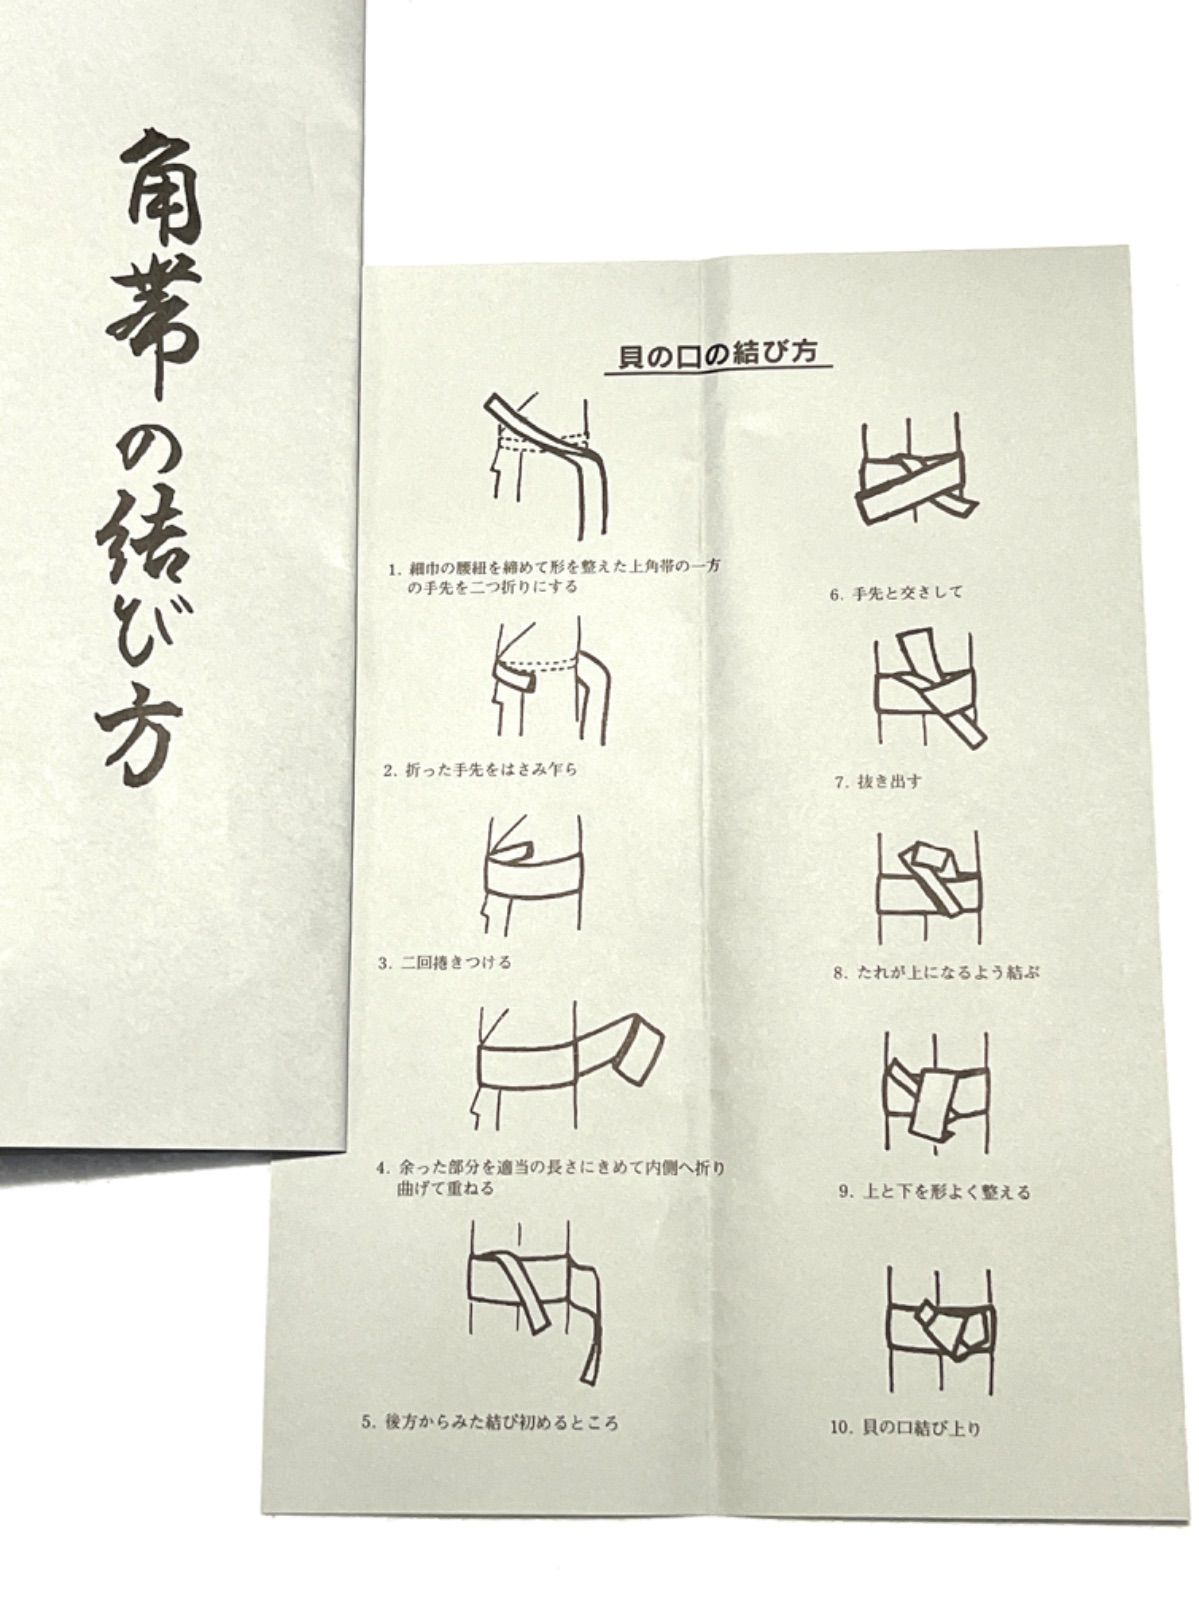 角帯の結び方
貝の口の結び方
1. 細巾の腰紐を締めて形を整えた上角帯の一方
の手先を二つ折りにする
2. 折った手先をはさみ乍ら
3. 二回捲きつける
4. 余った部分を適当の長さにきめて内側へ折り
曲げて重ねる
5. 後方からみた結び初めるところ
6. 手先と交さして
7. 抜き出す
8. たれが上になるよう結ぶ
9. 上と下を形よく整える
10. 貝の口結び上り